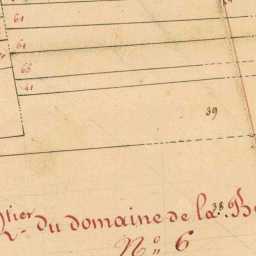 61
61
63
61
39
tier du domaine de la
38
N° 6